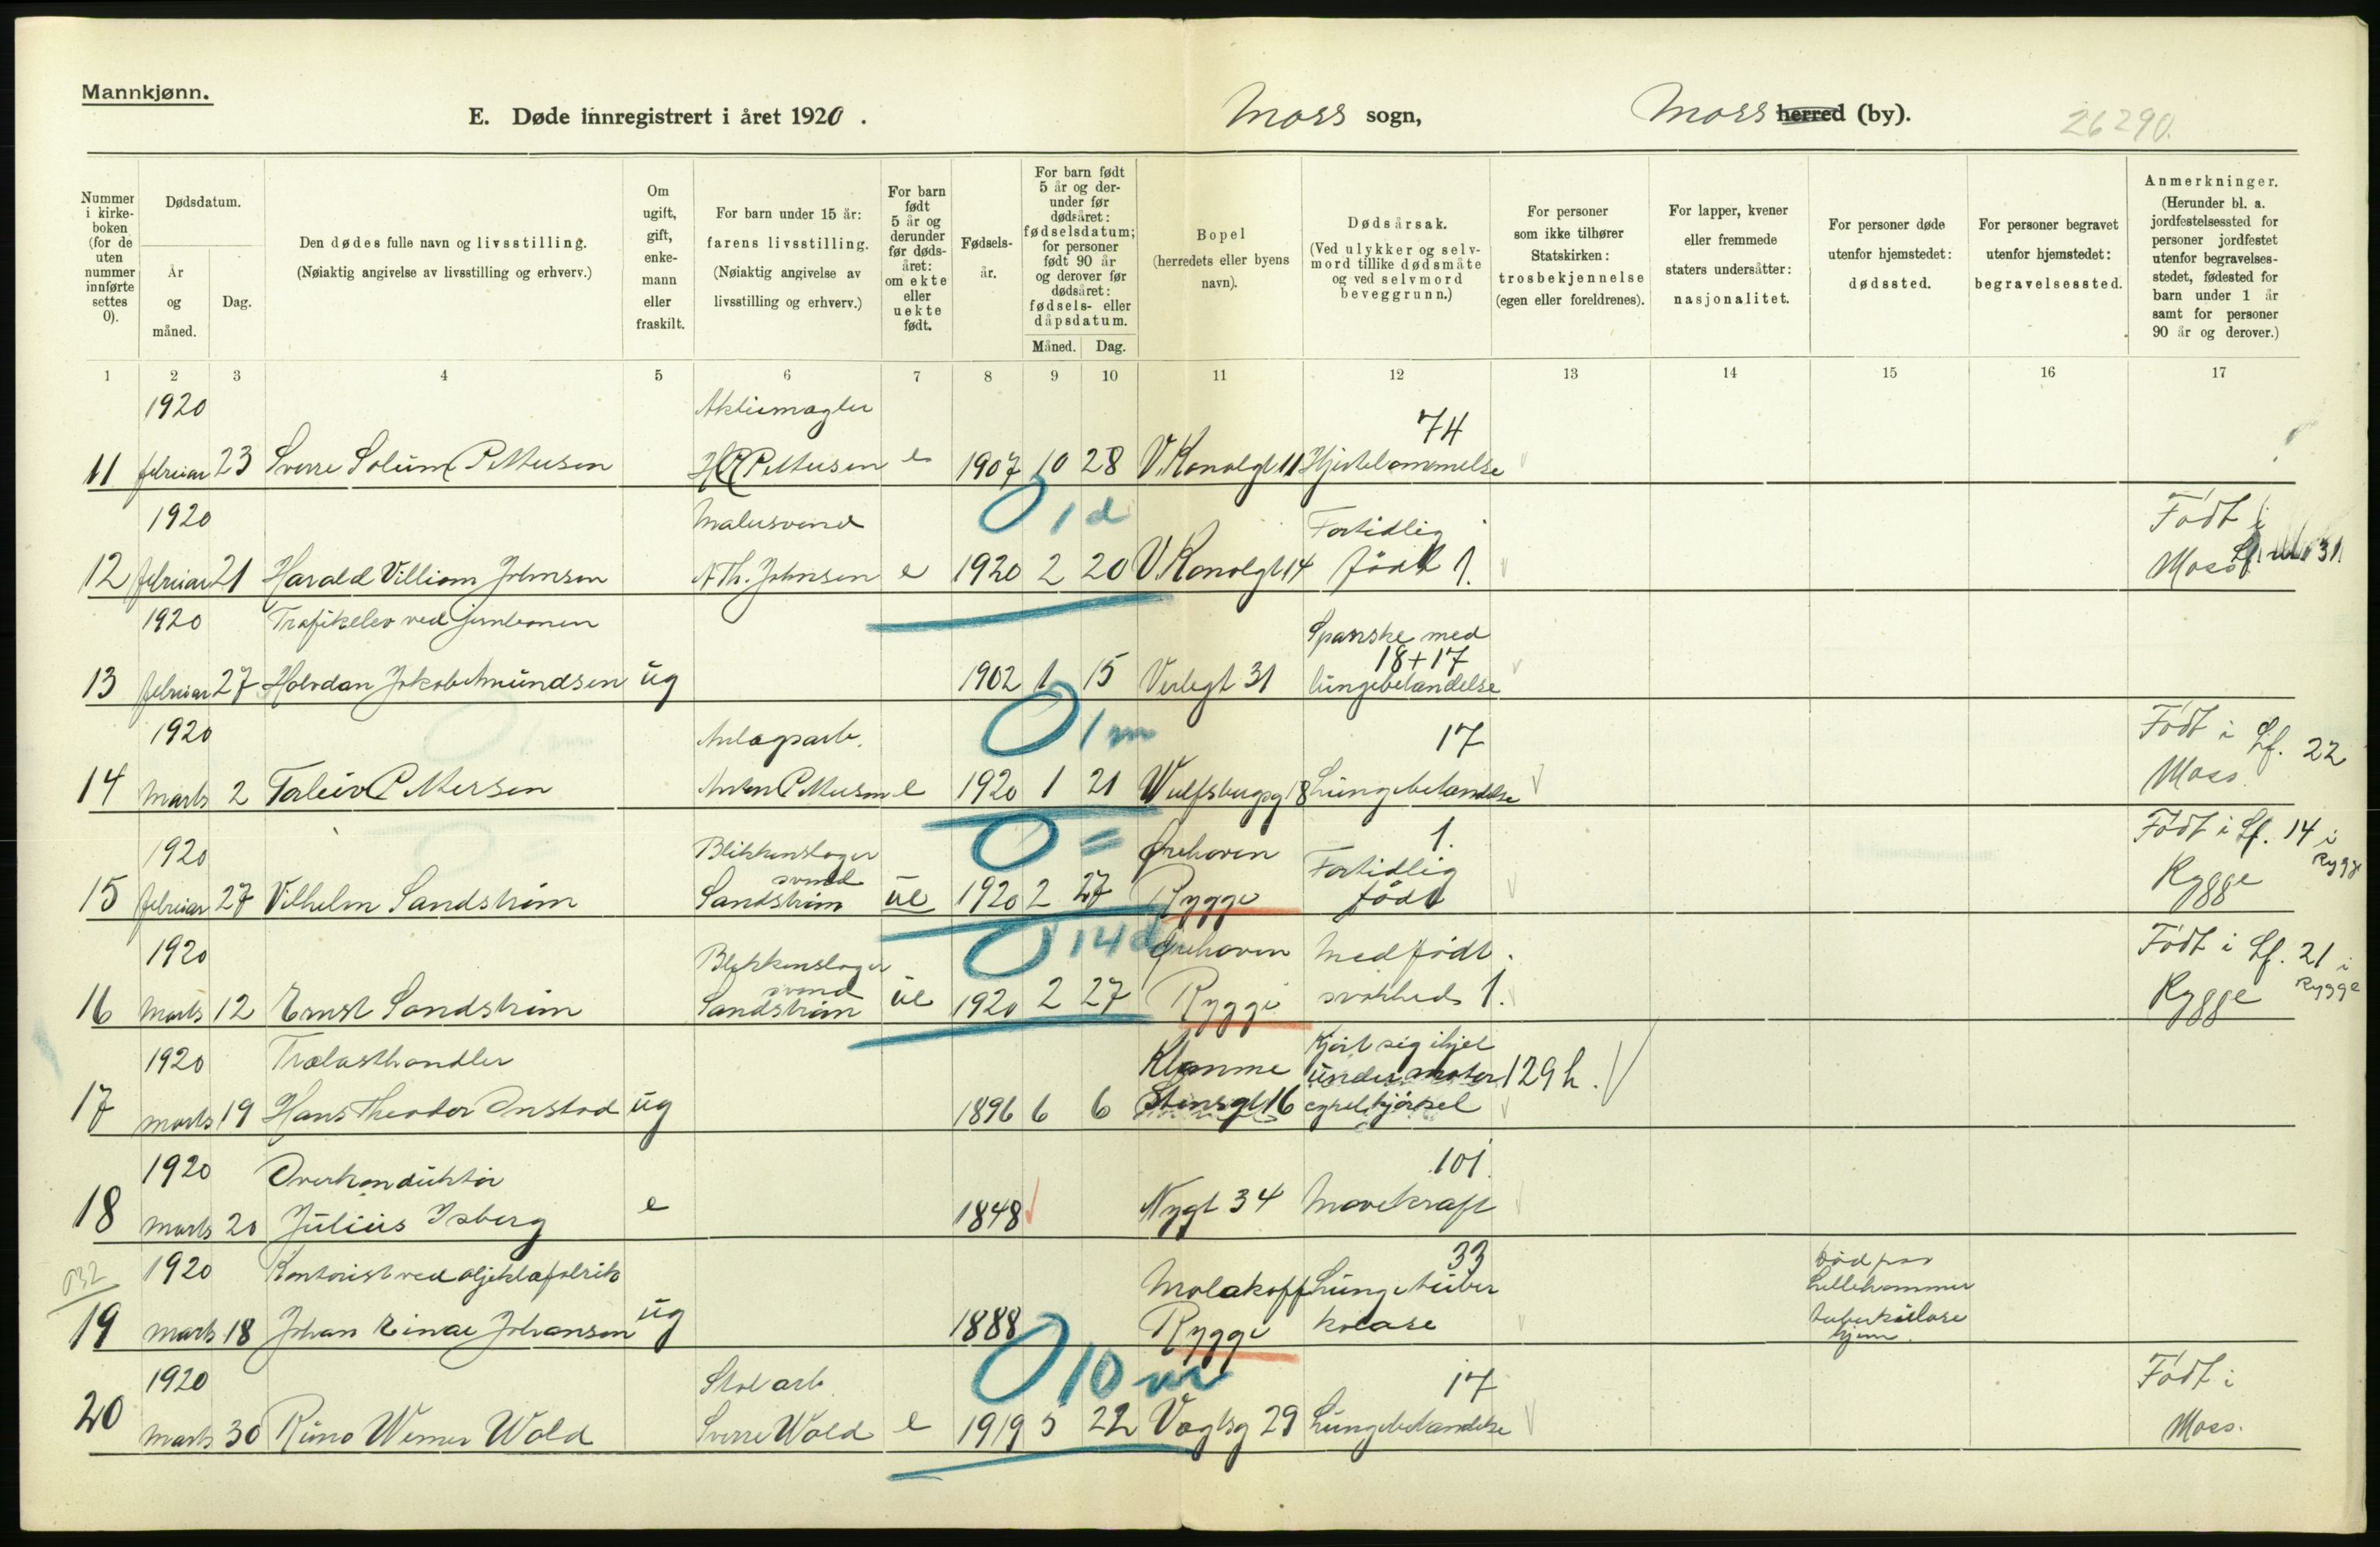 Mannkjønn.
E. Døde innregistrert i året 1920 .
Moss sogn,
Moss herred (by).
26290.
Nummer i kirke- boken (for de uten nummer innførte settes 0).
Dødsdatum.
År og måned.
Dag.
Den dødes fulle navn og livsstilling.
(Nøiaktig angivelse av livsstilling og erhverv.)
Om ugift, gift, enke- mann eller fraskilt.
For barn under 15 år: farens livsstilling.
(Nøiaktig angivelse av livsstilling og erhverv.)
For barn født 5 år og derunder før døds- året: om ekte eller uekte født.
Fødsels- år.
For barn født 5 år og der- under før dødsåret: fødselsdatum; for personer født 90 år og derover før dødsåret: fødsels- eller dåpsdatum.
Måned. Dag.
Bopel (herredets eller byens navn).
Dødsårsak.
(Ved ulykker og selv- mord tillike dødsmåte og ved selvmord beveggrunn.)
For personer som ikke tilhører Statskirken: trosbekjennelse (egen eller foreldrenes).
For lapper, kvener eller fremmede staters undersåtter: nasjonalitet.
For personer døde utenfor hjemstedet: dødssted.
For personer begravet utenfor hjemstedet: begravelsessted.
Anmerkninger.
(Herunder bl. a. jordfestelsessted for personer jordfestet utenfor begravelses- stedet, fødested for barn under 1 år samt for personer 90 år og derover.)
1 2 3 4 5 6 7 8 9 10 11 12 13 14 15 16 17
1920 Aktiemægler 74
11 februar 23 Sverre Solum Pettersen Pettersen e 1907 10 28 V. Kanalgt 11 Hjertelammelse
1920 Malersvend 0 1 d Fortidlig Født i
12 februar 21 Harald Villiam Johnsen A Th. Johnsen e 1920 2 20 V. Kanalgt 14 født 1. Moss Lf. 31
1920 Trafikelev ved jernbanen Spanske med
18+17
13 februar 27 Halvdan Jakob Amundsen ug 1902 1 15 Verlegt 31 lungebetændelse
1920 Anlægsarb. 0 1 m 17 Født i Lf. 22
14 Marts 2 Torleiv Pettersen Anton Pettersen e 1920 1 21 Wulfsbergsg 18 Lungebetændelse Moss.
1920 Blikkenslager 0 = Ørehaven 1. Fortidlig Født i Lf. 14 i
svend Rygge
15 februar 27 Vilhelm Sandström Sandström ue 1920 2 27 Rygge født Rygge
1920 Blikkenslager 0 14 d Ørehaven Medfødt Født i Lf. 21 i
svend Rygge
16 Marts 12 Ernst Sandström Sandström ue 1920 2 27 Rygge svakhed 1. Rygge
1920 Trælasthandler Klomme Kjørt sig ihjel
under motor 129 h.
17 Marts 19 Hans Theodor Onstad ug 1896 6 6 Stensgt 16 cykelkjørsel
1920 Overkonduktør 101.
18 Marts 20 Julius Isberg e 1848 Nygt 34 Mavekræft
032 1920 Kontorist ved 33 Død paa
Malakoff Lungetuber Lillehammer
19 Marts 18 Johan Einar Johansen ug 1888 Rygge kolose tuberkulose
hjem.
1920 0 10 m 17 Født i
20 Marts 30 Runo Werner Wold Sverre Wold e 1919 5 22 Vogtsg 29 Lungebetændelse Moss.